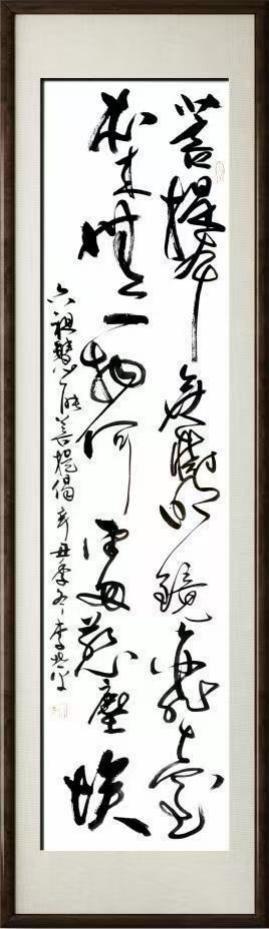 菩提本無樹明鏡亦非臺
本来無一物何處惹塵埃
六祖慧能菩提偈辛丑季冬李